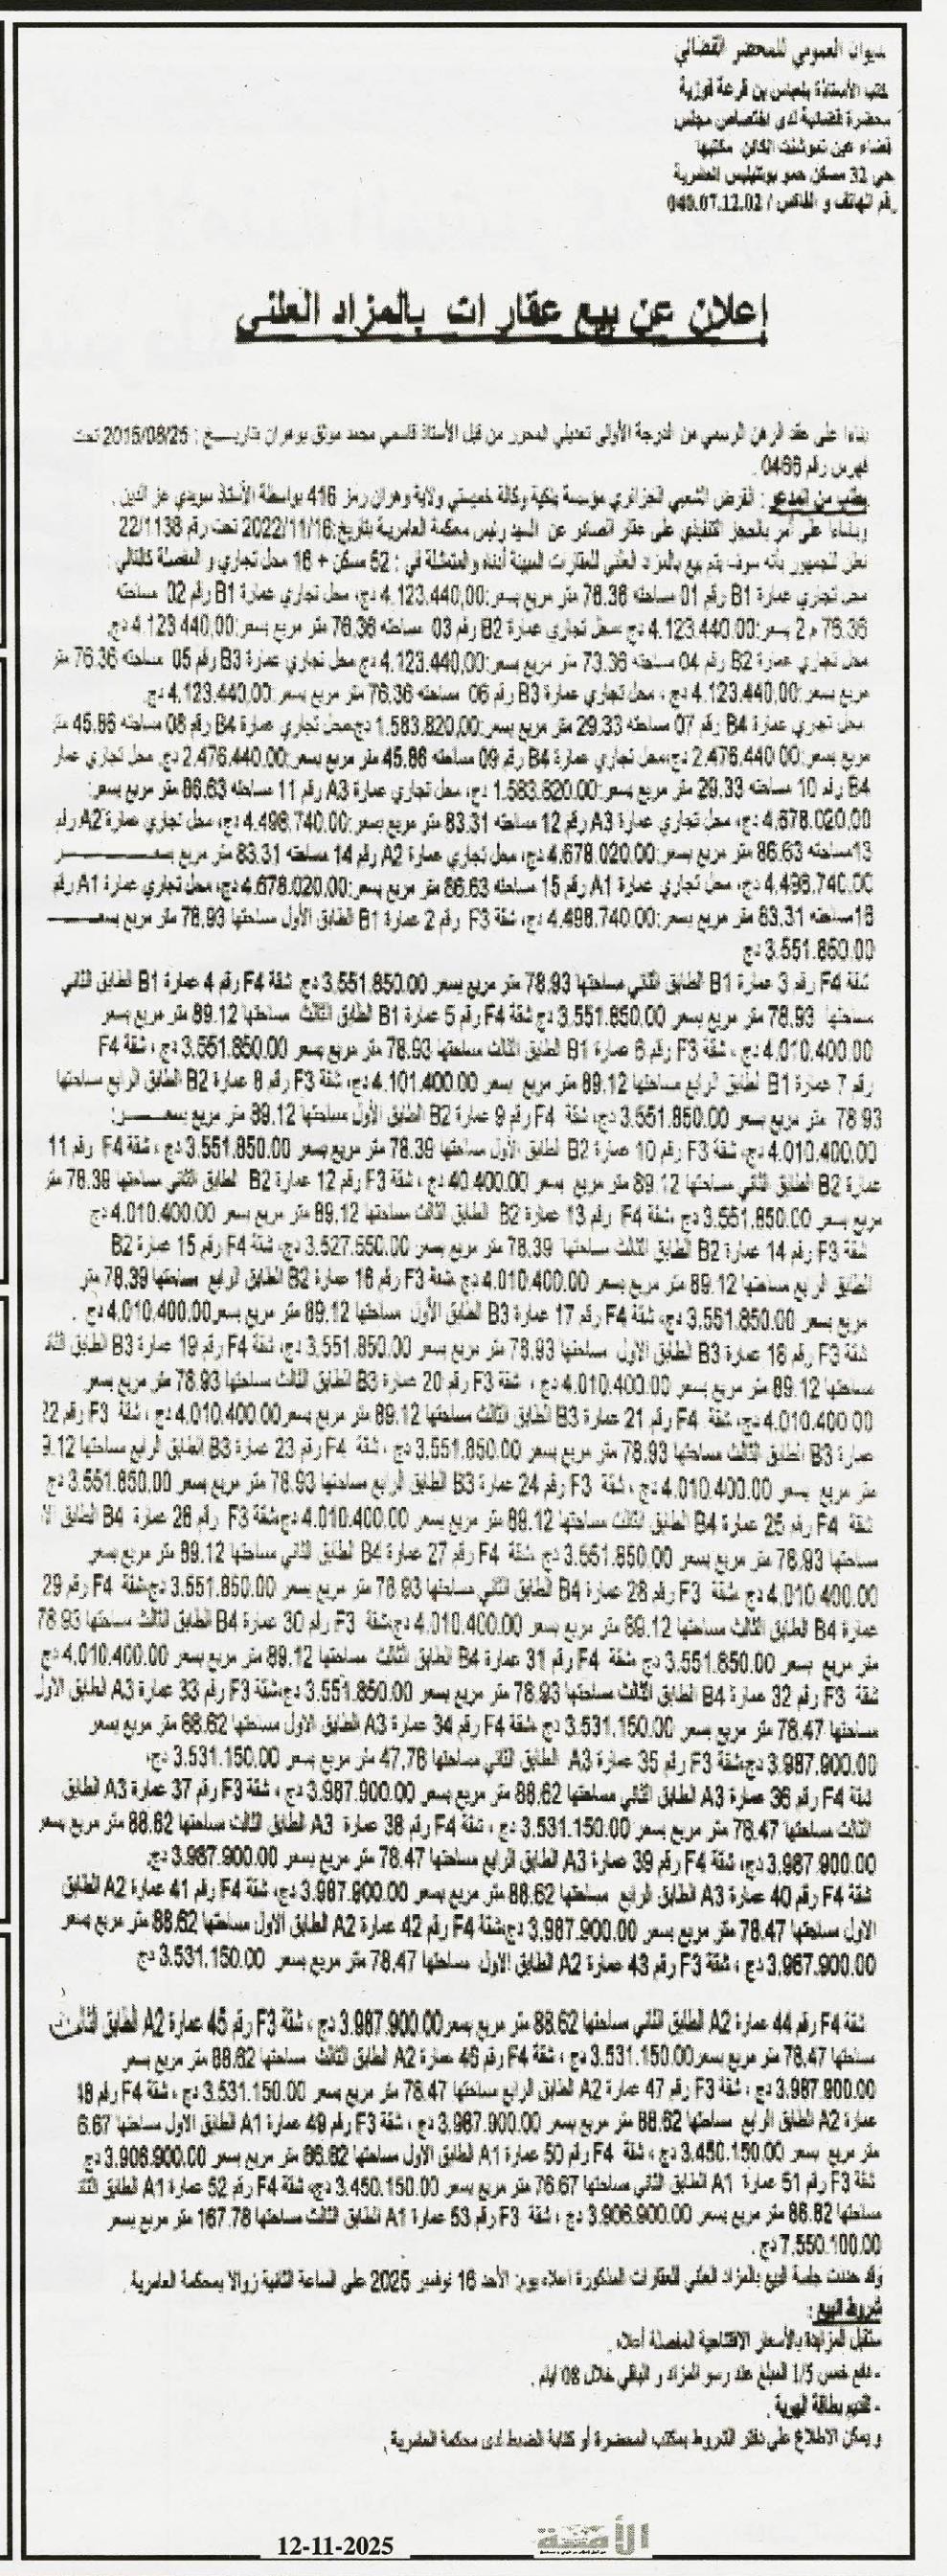 ديوان العمومي للمحضر القضائي
كتب الأستاذة بلعباس بن قرعة فوزية
محضرة قضائية لدى اختصاص مجلس
قضاء عين تموشنت الكائن مكتبها
حي 32 مسكن حمو بوتليليس العضرية
رقم الهاتف و الفاكس / 040.07.12.02
إعلان عن بيع عقارات بالمزاد العلني
بناءا على عقد الرهن الرسمي من الدرجة الأولى تعديلي المحرر من قبل الأستاذ قاسمي محمد موثق بوهران بتاريخ : 2015/08/25 تحت
فهرس رقم 0466 .
بطلب من المدعو : القرض الشعبي الجزائري مؤسسة بنكية وكالة خميستي ولاية وهران رمز 416 بواسطة الأستاذ سويدي عز الدين .
وبناءا على أمر بالحجز التنفيذي على عقار الصادر عن السيد رئيس محكمة العامرية بتاريخ:2022/11/16 تحت رقم 22/1138
نعلن للجمهور بأنه سوف يتم بيع بالمزاد العلني للعقارات المبينة أدناه والمتمثلة في : 52 مسكن + 16 محل تجاري و المفصلة كالتالي :
محل تجاري عمارة B1 رقم 01 مساحته 76.36 متر مربع بسعر:4.123.440,00 دج، محل تجاري عمارة B1 رقم 02 مساحته
76.36 م 2 بسعر:4.123.440.00 دج محل تجاري عمارة B2 رقم 03 مساحته 76.36 متر مربع بسعر:4.123.440,00 دج.
محل تجاري عمارة B2 رقم 04 مساحته 73.36 متر مربع بسعر:4.123.440,00 دج محل تجاري عمارة B3 رقم 05 مساحته 76.36 متر
مربع بسعر:4.123.440.00 دج ، محل تجاري عمارة B3 رقم 06 مساحته 76.36 متر مربع بسعر:4.123.440.00 دج.
محل تجاري عمارة B4 رقم 07 مساحته 29.33 متر مربع بسعر:1.583.820,00 دج،محل تجاري عمارة B4 رقم 08 مساحته 45.86 متر
مربع بسعر:2.476.440.00 دج،محل تجاري عمارة B4 رقم 09 مساحته 45.86 متر مربع بسعر:2.476.440.00 دج. محل تجاري عمار
B4 رقم 10 مساحته 29.33 متر مربع بسعر:1.583.820.00 دج، محل تجاري عمارة A3 رقم 11 مساحته 86.63 متر مربع بسعر:
4.678.020.00 دج، محل تجاري عمارة A3 رقم 12 مساحته 83.31 متر مربع بسعر:4.498.740.00 دج، محل تجاري عمارة A2 رقم
13مساحته 86.63 متر مربع بسعر:4.678.020.00 دج، محل تجاري عمارة A2 رقم 14 مساحته 83.31 متر مربع بسعـــــر
4.498.740.00 دج، محل تجاري عمارة A1 رقم 15 مساحته 86.63 متر مربع بسعر:4.678.020.00 دج، محل تجاري عمارة A1 رقم
16مساحته 83.31 متر مربع بسعر:4.498.740.00 دج، شقة F3 رقم 2 عمارة B1 الطابق الأول مساحتها 78.93 متر مربع بسعـــــر
3.551.850.00 دج
شقة F4 رقم 3 عمارة B1 الطابق الثاني مساحتها 78.93 متر مربع بسعر 3.551.850.00 دج شقة F4 رقم 4 عمارة B1 الطابق الثاني
مساحتها 78.93 متر مربع بسعر 3.551.850.00 دج شقة F4 رقم 5 عمارة B1 الطابق الثالث مساحتها 89.12 متر مربع بسعر
4.010.400.00 دج ، شقة F3 رقم 6 عمارة B1 الطابق الثالث مساحتها 78.93 متر مربع بسعر 3.551.850.00 دج ، شقة F4
رقم 7 عمارة B1 لطابق الرابع مساحتها 89.12 متر مربع بسعر 4.101.400.00 دج، شقة F3 رقم 8 عمارة B2 الطابق الرابع مساحتها
78.93 متر مربع بسعر 3.551.850.00 دج، شقة F4 رقم 9 عمارة B2 الطابق الأول مساحتها 89.12 متر مربع بسعـــر:
4.010.400.00 دج، شقة F3 رقم 10 عمارة B2 لطابق الأول مساحتها 78.39 متر مربع بسعر 3.551.850.00 دج ، شقة F4 رقم 11
عمارة B2 الطابق الثاني مساحتها 89.12 متر مربع بسعر 40.400.00 دج ، شقة F3 رقم 12 عمارة B2 الطابق الثاني مساحتها 78.39 متر
مربع بسعر 3.551.850.00 دج ،شقة F4 رقم 13 عمارة B2 الطابق الثالث مساحتها 89.12 متر مربع بسعر 4.010.400.00 دج
شقة F3 رقم 14 عمارة B2 الطابق الثالث مساحتها 78.39 متر مربع بسعر 3.527.550.00 دج، شقة F4 رقم 15 عمارة B2
الطابق الرابع مساحتها 89.12 متر مربع بسعر 4.010.400.00 دج شقة F3 رقم 16 عمارة B2 الطابق الرابع مساحتها 78.39 متر
مربع بسعر 3.551.850.00 دج، شقة F4 رقم 17 عمارة B3 الطابق الأول مساحتها 89.12 متر مربع بسعر4.010.400.00 دج .
شقة F3 رقم 18 عمارة B3 الطابق الاول مساحتها 78.93 متر مربع بسعر 3.551.850.00 دج، شقة F4 رقم 19 عمارة B3 الطابق الثاذ
مساحتها 89.12 متر مربع بسعر 4.010.400.00 دج ، شقة F3 رقم 20 عمارة B3 الطابق الثالث مساحتها 78.93 متر مربع بسعر
4.010.400.00 دج، شقة F4 رقم 21 عمارة B3 الطابق الثالث مساحتها 89.12 متر مربع بسعر4.010.400.00 دج ، شقة F3 رقم 22
عمارة B3 الطابق الثالث مساحتها 78.93 متر مربع بسعر 3.551.850.00 دج ، شقة F4 رقم 23 عمارة B3 الطابق الرابع مساحتها 9.12
متر مربع بسعر 4.010.400.00 دج ، شقة F3 رقم 24 عمارة B3 الطابق الرابع مساحتها 78.93 متر مربع بسعر 3.551.850.00 دج
شقة F4 رقم 25 عمارة B4 الطابق الثالث مساحتها 89.12 متر مربع بسعر 4.010.400.00 دج،شقة F3 رقم 26 عمارة B4 الطابق الا
مساحتها 78.93 متر مربع بسعر 3.551.850.00 دج شقة F4 رقم 27 عمارة B4 لطابق الثاني مساحتها 89.12 متر مربع بسعر
4.010.400.00 دج شقة F3 رقم 28 عمارة B4 الطابق الثاني مساحتها 78.93 متر مربع بسعر 3.551.850.00 دج،شقة F4 رقم 29
عمارة B4 الطابق الثالث مساحتها 89.12 متر مربع بسعر 4.010.400.00 دج،شقة F3 رقم 30 عمارة B4 الطابق الثالث مساحتها 78.93
متر مربع بسعر 3.551.850.00 دج شقة F4 رقم 31 عمارة B4 الطابق الثالث مساحتها 89.12 متر مربع بسعر 4,010.400.00 دج
شقة F3 رقم 32 عمارة B4 الطابق الثالث مساحتها 78.93 متر مربع بسعر 3.551.850.00 دج،شقة F3 رقم 33 عمارة A3 الطابق الاول
مساحتها 78.47 متر مربع بسعر 3.531.150.00 دج شقة F4 رقم 34 عمارة A3 الطابق الاول مساحتها 88.62 متر مربع بسعر
3.987.900.00 دج،شقة F3 رقم 35 عمارة A3 الطابق الثاني مساحتها 47.78 متر مربع بسعر 3.531.150.00 دج،
شقة F4 رقم 36 عمارة A3 الطابق الثاني مساحتها 88.62 متر مربع بسعر 3.987.900.00 دج ، شقة F3 رقم 37 عمارة A3 الطابق
الثالث مساحتها 78.47 متر مربع بسعر 3.531.150.00 دج ، شقة F4 رقم 38 عمارة A3 الطابق الثالث مساحتها 88.62 متر مربع بسعر
3.987.900.00 دج، شقة F4 رقم 39 عمارة A3 الطابق الرابع مساحتها 78.47 متر مربع بسعر 3.987.900.00 دج.
شقة F4 رقم 40 عمارة A3 الطابق الرابع مساحتها 88.62 متر مربع بسعر 3.987.900.00 دج، شقة F4 رقم 41 عمارة A2 الطابق
الاول مساحتها 78.47 متر مربع بسعر 3.987.900.00 دج،شقة F4 رقم 42 عمارة A2 الطابق الاول مساحتها 88.62 متر مربع بسعر
3.987.900.00 دج ، شقة F3 رقم 43 عمارة A2 الطابق الاول مساحتها 78.47 متر مربع بسعر 3.531.150.00 دج
شقة F4 رقم 44 عمارة A2 الطابق الثاني مساحتها 88.62 متر مربع بسعر3.987.900.00 دج ، شقة F3 رقم 45 عمارة A2 الطابق الثالث
مساحتها 78.47 متر مربع بسعر3.531.150.00 دج ، شقة F4 رقم 46 عمارة A2 الطابق الثالث مساحتها 88.62 متر مربع بسعر
3.987.900.00 دج ، شقة F3 رقم 47 عمارة A2 الطابق الرابع مساحتها 78.47 متر مربع بسعر 3.531.150.00 دج ، شقة F4 رقم 48
عمارة A2 الطابق الرابع مساحتها 88.62 متر مربع بسعر 3.987.900.00 دج ، شقة F3 رقم 49 عمارة A1 الطابق الاول مساحتها 6.67
متر مربع بسعر 3.450.150.00 دج ، شقة F4 رقم 50 عمارة A1 الطابق الاول مساحتها 86.82 متر مربع بسعر 3.906.900.00 دج
شقة F3 رقم 51 عمارة A1 الطابق الثاني مساحتها 76.67 متر مربع بسعر 3.450.150.00 دج، شقة F4 رقم 52 عمارة A1 الطابق الثا
مساحتها 86.82 متر مربع بسعر 3.906.900.00 دج ، شقة F3 رقم 53 عمارة A1 الطابق الثالث مساحتها 167.78 متر مربع بسعر
7.550.100.00 دج .
وقد حددت جلسة البيع بالمزاد العلني للعقارات المذكورة اعلاه يوم: الأحد 16 نوفمبر 2025 على الساعة الثانية زوالا بمحكمة العامرية .
شروط البيع :
ستقبل المزايدة بالأسعار الافتتاحية المفصلة أعلاه .
- دفع خمس 1/5 المبلغ عند رسو المزاد و الباقي خلال 08 ايام .
- تقديم بطاقة الهوية .
و يمكن الاطلاع على دفتر الشروط بمكتب المحضرة أو كتابة الضبط لدى محكمة العامرية .
12-11-2025 الأمة